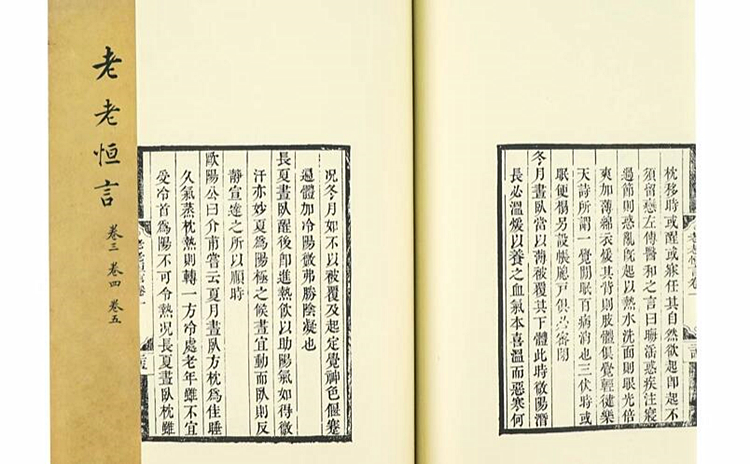 老老恒言
卷三 卷四 卷五
枕移時或醒或寐任其自然欲起即起不
須留戀左傳醫和之言曰晦淫惑疾注寢
過節則惑亂旣起以熱水洗面則眼光倍
爽加薄綿衣煖其背則肢體俱覺輕健樂
天詩所謂一覺閒眠百病消也三伏時或
眠便榻另設帳簾戶俱必密閉
冬月晝臥當以薄被覆其下體此時微陽潛
長必溫煖以養之血氣本喜溫而惡寒何
況冬月如不以被覆及起定覺神色偃蹇
遍體加冷陽微弗勝陰凝也
長夏晝臥醒後即進熱飲以助陽氣如得微
汗亦妙夏爲陽極之候晝宜動而臥則反
靜宣達之所以順時
歐陽公曰介甫嘗云夏月晝臥方枕爲佳睡
久氣蒸枕熱則轉一方冷處老年雖不宜
受冷首爲陽不可令熱況長夏晝臥枕雖